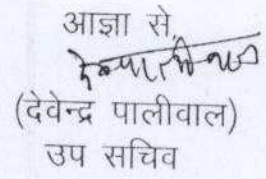 आज्ञा से,
(देवेन्द्र पालीवाल)
उप सचिव